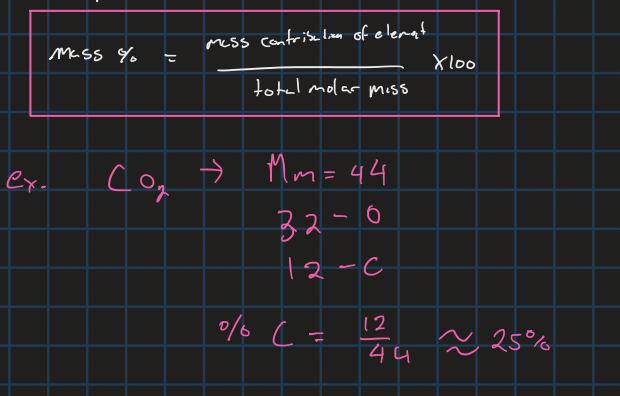 mass % = mass contribution of element / total molar mass ×100
ex. CO₂ → Mm = 44
32 - O
12 - C
% C = 12/44 ≈ 25%